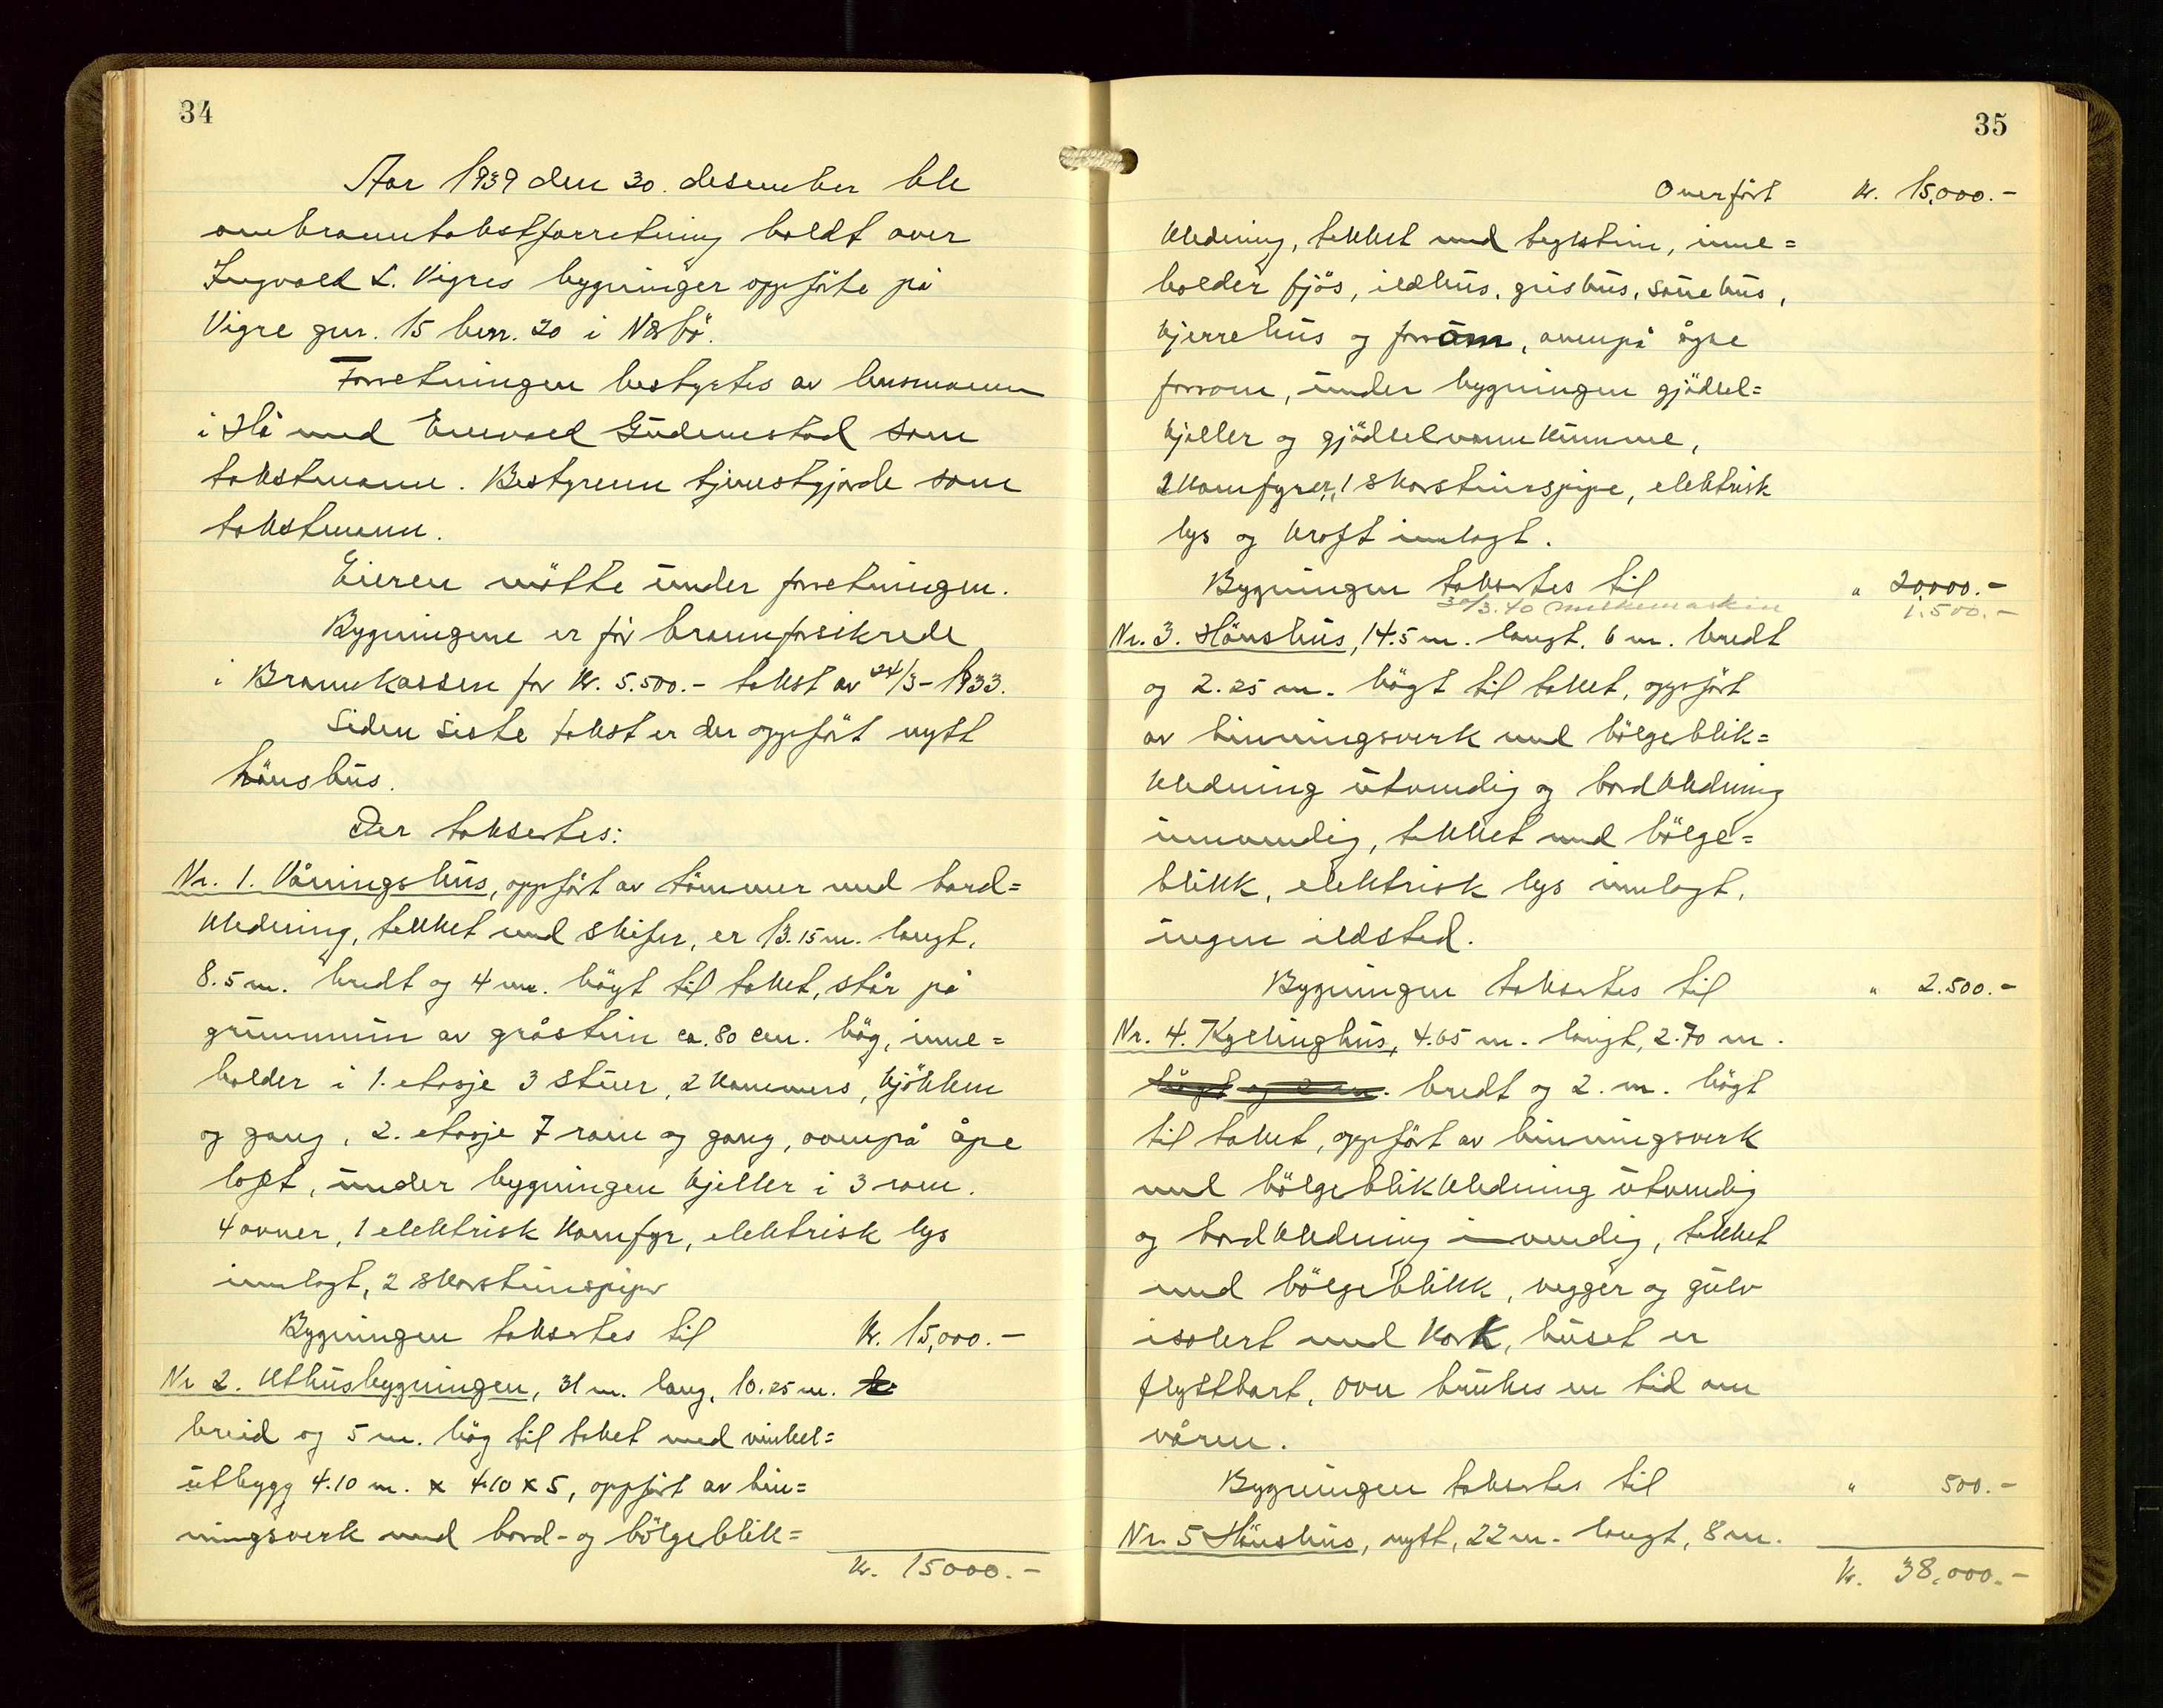 34
Aar 1939 den 30. desember ble
ombranntakstforretning holdt over
Ingvald L. Vigres bygninger oppförte på
Vigre gnr. 15 bnr. 20 i Nærbö.
Forretningen bestyrtes av lensmannen
i Hå med Enevald Gudmestad som
takstmann. Bestyreren tjenestgjorde som
takstmann.
Eieren mötte under forretningen.
Bygningene er för brannforsikrede
i Brannkassen for kr. 5.500.- takst av 24/3-1933.
Siden siste takst er der oppfört nytt
hönshus.
Der taksertes:
Nr. 1. Våningshus, oppfört av tömmer med bord=
kledning, tekket med skifer, er 13.15 m. langt,
8.5 m. bredt og 4 m. högt til taket, står på
grunnmur av gråstein ca. 80 cm. hög, inne=
holder i 1. etasje 3 stuer, 2 kammers, kjökken
og gang, 2. etasje 7 rom og gang, ovenpå åpe
loft, under bygningen kjeller i 3 rom.
4 ovner, 1 elektrisk komfyr, elektrisk lys
innlagt, 2 skorsteinspiper
Bygningen taksertes til kr. 15,000.-
Nr 2. Uthusbygningen, 31 m. lang, 10.25 m.
breid og 5 m. hög til taket med vinkel=
utbygg 4.10 m. x 4.10 x 5, oppfört av bin=
ningsverk med bord- og bölgeblik=
kr. 15000.-
35
Overfört kr. 15,000.-
kledning, tekket med teglstein, inne=
holder fjös, ildhus, grishus, sauehus,
kjerrehus og forrom, ovenpå åpne
forrom, under bygningen gjödsel=
kjeller og gjödselvannkumme,
2 komfyrer, 1 skorsteinspipe, elektrisk
lys og kraft innlagt.
Bygningen taksertes til " 20,000.-
30/3.40 melkemaskin 1.500.-
Nr. 3. Hönshus, 14.5 m. langt, 6 m. bredt
og 2.25 m. högt til taket, oppfört
av binningsverk med bölgeblik=
kledning utvendig og bordkledning
innvendig, tekket med bölge=
blikk, elektrisk lys innlagt,
ingen ildsted.
Bygningen taksertes til " 2.500.-
Nr. 4. Kyllinghus, 4.65 m. langt, 2.70 m.
högt og 2 m. bredt og 2. m. högt
til taket, oppfört av binningsverk
med bölgeblikkledning utvendig
og bordkledning invendig, tekket
med bölgeblikk, vegger og gulv
isolert med kork, huset er
flyttbart, ovn brukes en tid om
våren.
Bygningen taksertes til " 500.-
Nr. 5 Hönshus, nytt, 22 m. langt, 8 m.
kr. 38,000.-